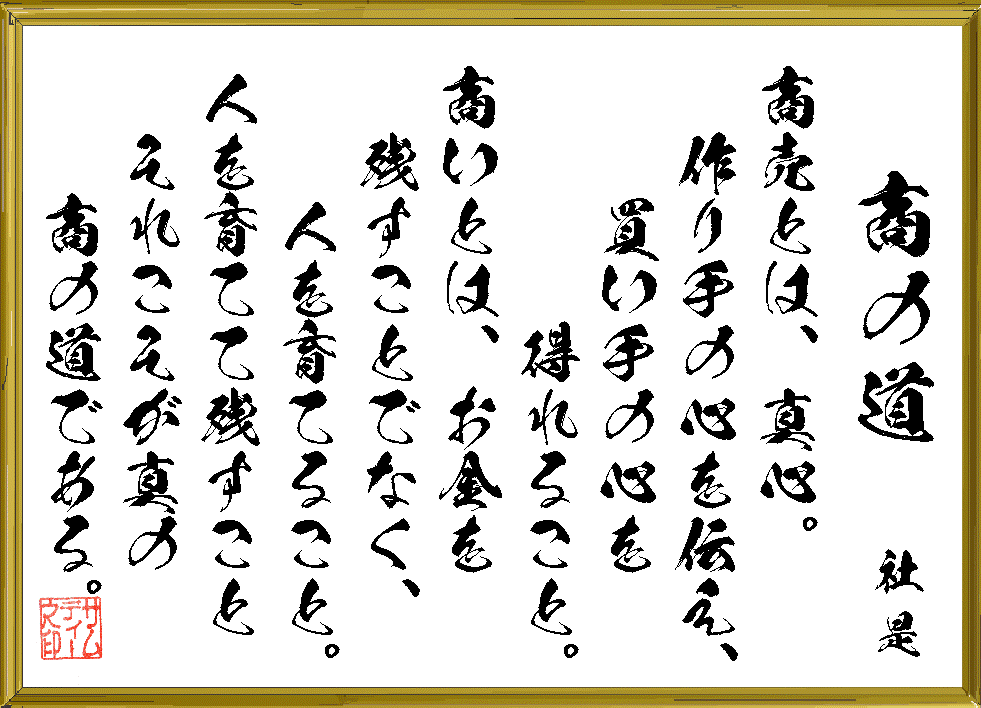 商の道 社是
商売とは、真心。
作り手の心を伝え、
買い手の心を
得れること。
商いとは、お金を
残すことでなく、
人を育てること。
人を育てて残すこと
それこそが真の
商の道である。
サム
ティー
之印